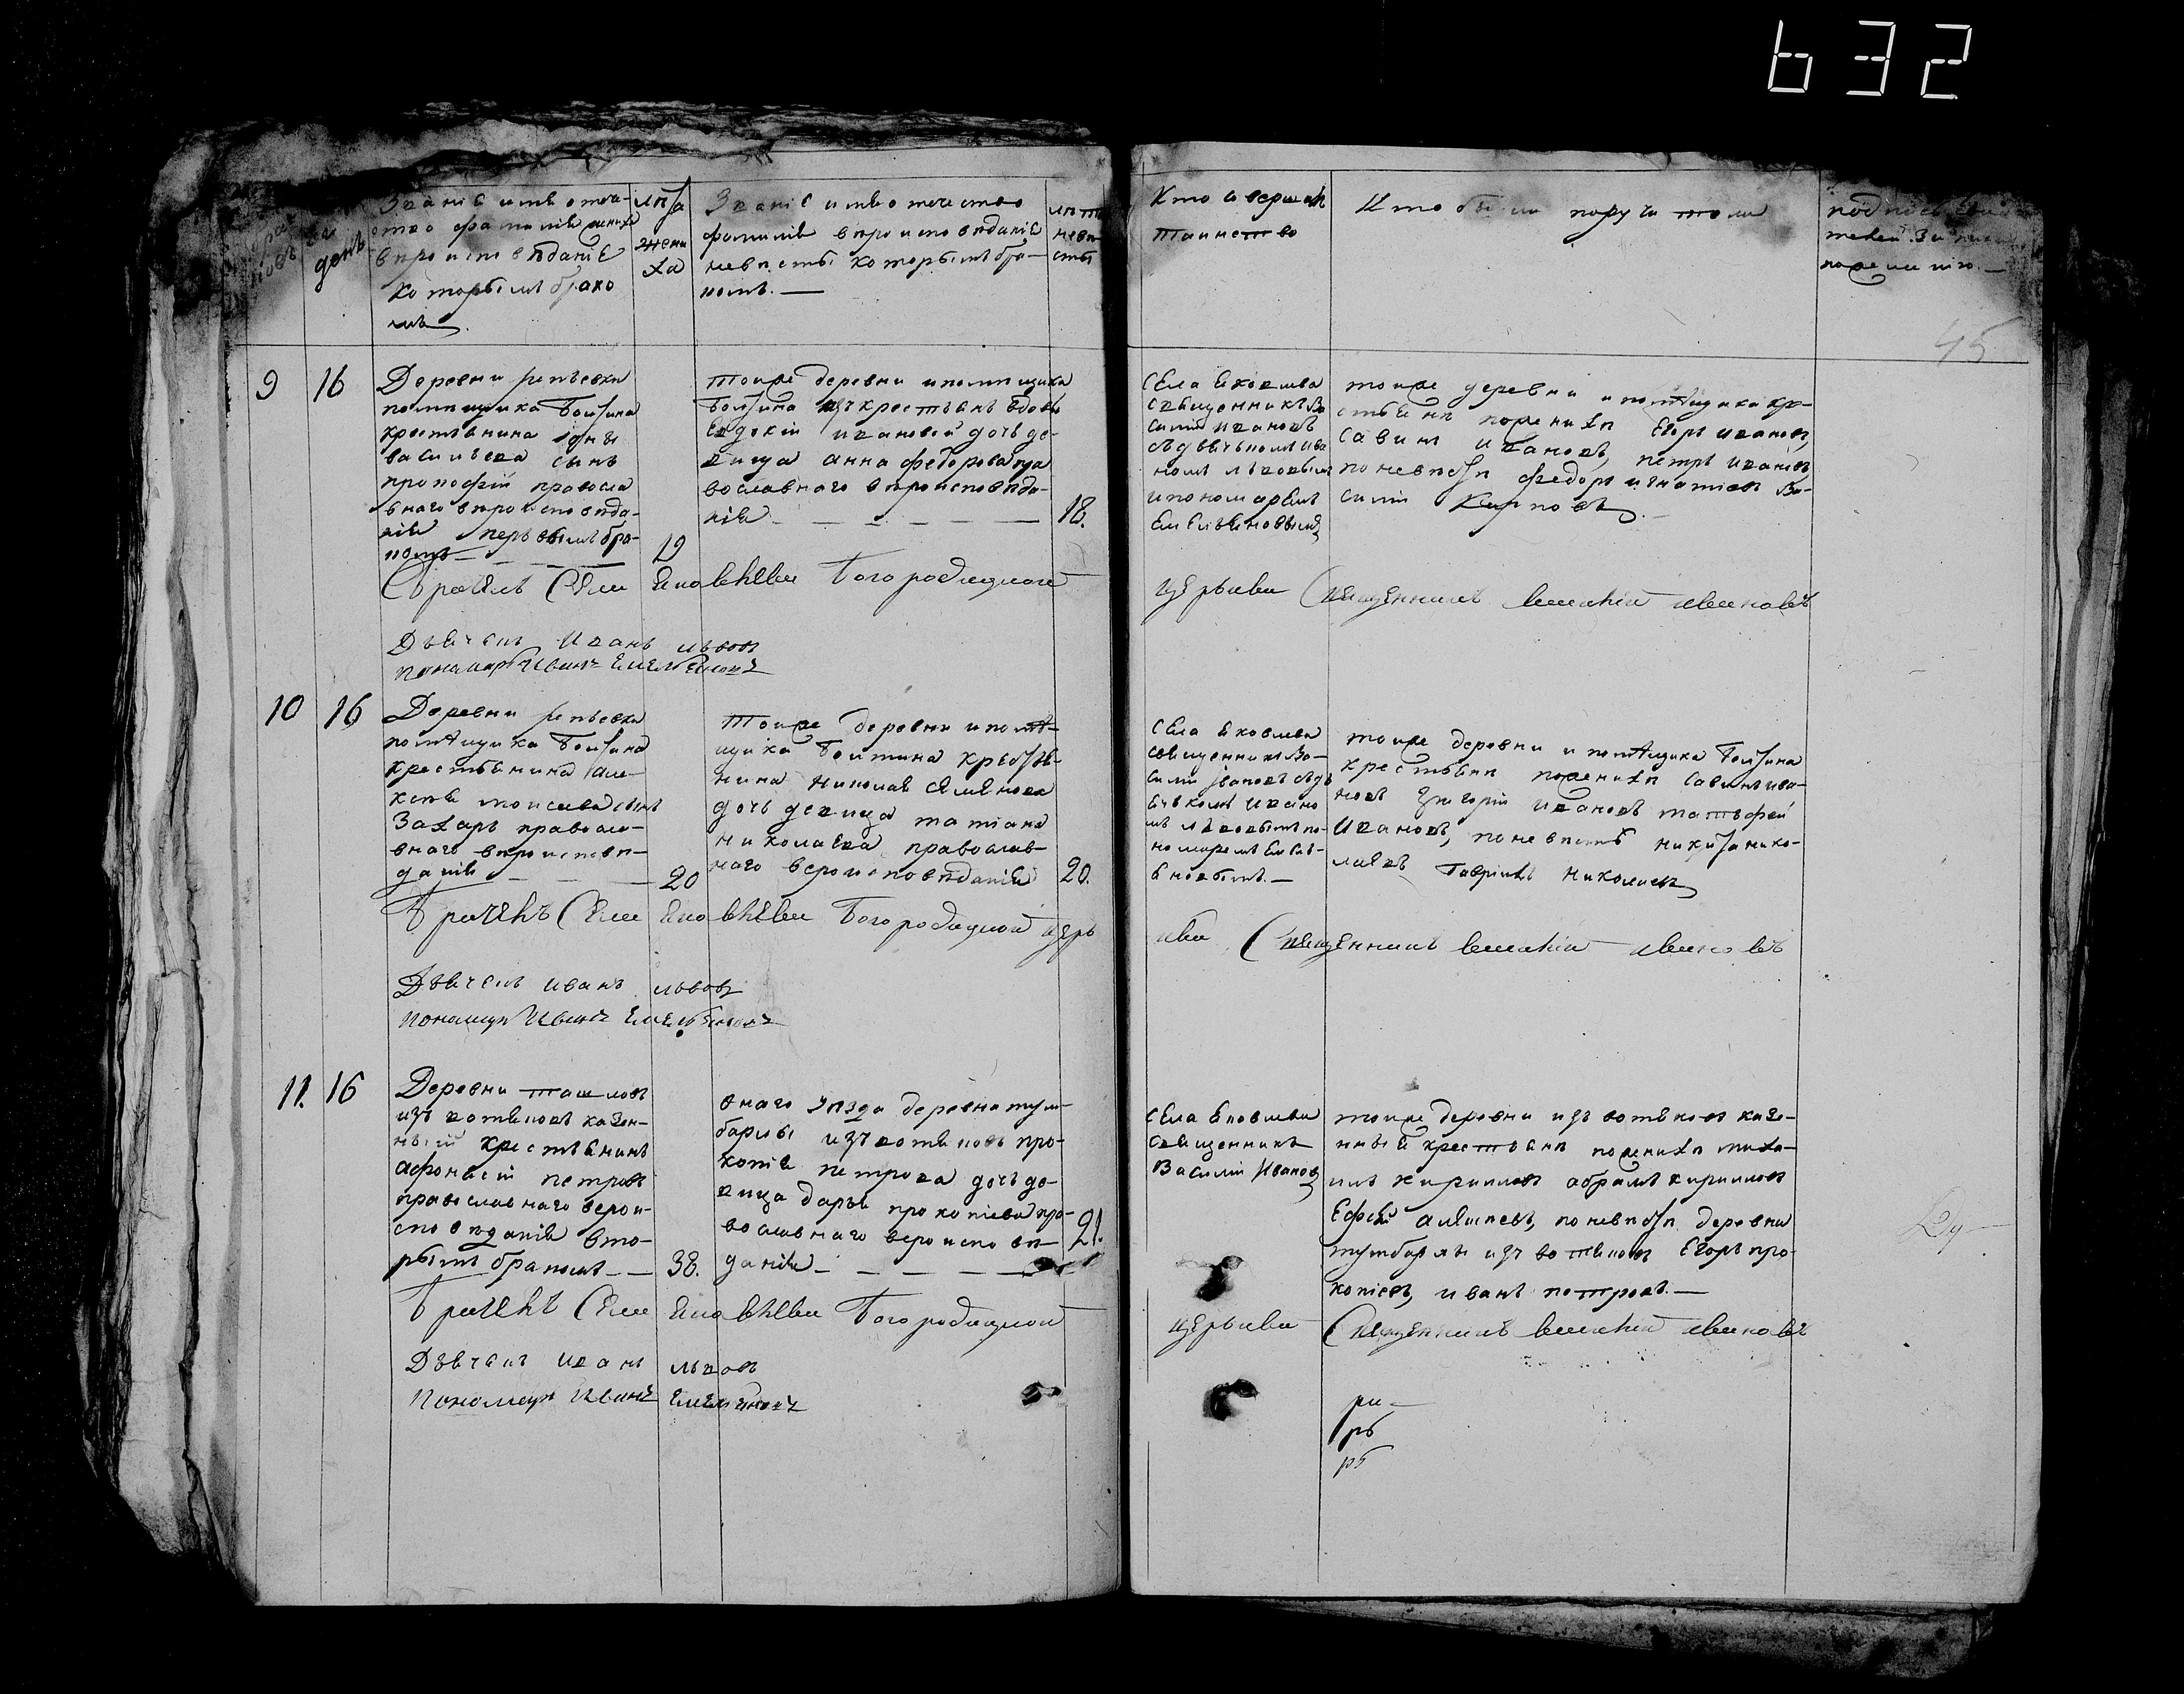 632
день
Званіе имя отече-
ство фамилія жениха
вѣроисповѣданіе
которымъ брако
мъ
лѣта
жени
ха
Званіе имя отечество
фамилія вѣроисповѣданіе
невѣсты которымъ бра-
комъ.
лѣта
невѣ
сты
Кто совершалъ
таинство
Кто были поручители
подпись свидѣ
телей
45
9 16
Деревни репьевки
помѣщика
крестьянина іоны
васильева сынъ
прокофій правосла
внаго вѣроисповѣда-
нія первымъ бра-
комъ
19
тойже деревни и помѣщика
изъ крестьянъ вдовы
Евдокіи ивановой дочь де-
вица анна федорова пра
вославнаго вѣроисповѣда-
нія
18.
села Яковлева
священникъ Ва
силій Ивановъ
съ дьячькомъ ива
номъ львовымъ
и пономаремъ
Емельяновымъ
тойже деревни и помѣщика кре-
стьянъ по женихѣ Егоръ ивановъ,
савинъ ивановъ, петръ ивановъ
по невѣстѣ федоръ игнатіевъ ва-
силій Карповъ
Села Яковлева Богородицкой
церькви Священникъ василій ивановъ
Дьячекъ Иванъ львовъ
пономарь Иванъ Емельяновъ
10 16
Деревни репьевки
помѣщика
крестьянина але-
ксѣя моисеева сынъ
Захаръ правосла-
внаго вѣроисповѣ-
данія
20
тойже деревни и помѣ-
щика крестья-
нина николая семенова
дочь девица татіана
николаева православ-
наго вероисповѣданія
20.
села Яковлева
священникъ Ва-
силій івановъ съ дь
ячькомъ ивано
мъ львовымъ по-
номаремъ Емель-
яновымъ.
тойже деревни и помѣщика
крестьянъ по женихѣ савинъ ива-
новъ григорій ивановъ матьфей
ивановъ, по невѣстѣ никита нико-
лаевъ Гаврилъ Николаевъ
Села Яковлева Богородицкой церь
кви Священникъ василій ивановъ
Дьячекъ иванъ львовъ
пономарь Иванъ Емельяновъ
11. 16
Деревни ташловъ
изъ вотяковъ казен-
ный крестьянинъ
афонасій петровъ
православнаго верои-
споведанія вто-
рымъ бракомъ
38.
онаго уезда деревни тум-
барлы изъ вотяковъ про-
копія петрова дочь де-
вица дарья прокопіева пра-
вославнаго вероисповѣ-
данія
21.
села Яковлева
священникъ
Василій Ивановъ
тойже деревни изъ вотяковъ казе-
нные крестьяне по женихѣ миха-
илъ кириловъ абрамъ кириловъ
Ефсей алексѣевъ, по невѣстѣ деревни
тумбарлы изъ вотяковъ Егоръ про-
копіевъ, иванъ петровъ.
Села Яковлева Богородицкой
церькви Священникъ василій ивановъ
Дьячекъ Иванъ львовъ
Пономарь Иванъ Емельяновъ
ра
рь
рь